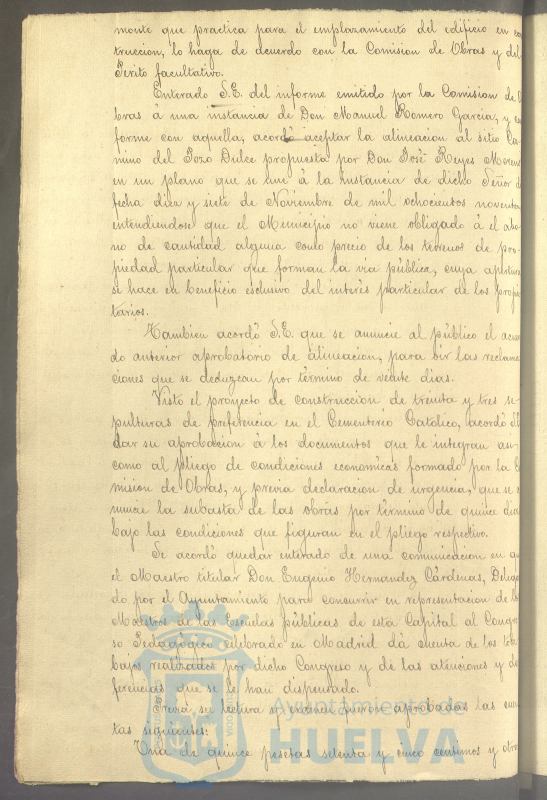 monte que practica para el emplazamiento del edificio en
truccion, lo haga de acuerdo con la Comision de Obras y del
Périto facultativo.
Enterado S.E. del informe emitido por la Comision de
bras á una instancia de Don Manuel Romero Garcia, y
forme con aquella, acordó aceptar la alineacion al sitio Ca-
mino del Pozo Dulce propuesta por Don José Reyes
en un plano que se une á la instancia de dicho Señor
fecha diez y siete de Noviembre de mil ochocientos noventa
entendiendose que el Municipio no viene obligado á el abo-
no de cantidad alguna como precio de los terrenos de pro-
piedad particular que forman la via pública, cuya apertura
se hace en beneficio esclusivo del interés particular de los propie
tarios.
Tambien acordó S.E. que se anuncie al público el acuer
do anterior aprobatorio de alineacion, para oir las reclama
ciones que se deduzcan por término de veinte dias.
Visto el proyecto de construccion de treinta y tres se-
pulturas de preferencia en el Cementerio Católico, acordó
dar su aprobacion á los documentos que le integran asi
como al pliego de condiciones económicas formado por la
mision de Obras, y previa declaracion de urgencia, que se
nuncie la subasta de las obras por término de quince dias
bajo las condiciones que figuran en el pliego respectivo.
Se acordó quedar enterado de una comunicacion en
el Maestro titular Don Eugenio Hernandez Cárdenas, Delega
do por el Ayuntamiento para concurrir en representacion de
Maestros de las Escuelas públicas de esta Capital al Congre
so Pedagógico celebrado en Madrid dá cuenta de los tra
bajos realizados por dicho Congreso y de las atenciones y de
ferencias que se le han dispensado.
Previa su lectura y examen fueron aprobadas las cuen
tas siguientes:
Una de quince pesetas setenta y cinco centimos y otra
Ayuntamiento de
HUELVA